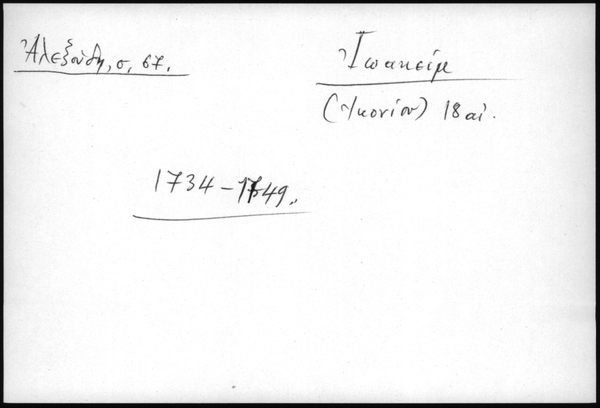 Ἀλεξούδη, σ, 67.
Ἰωακείμ
(Ἰκονίου) 18 αἰ.
1734–1749.